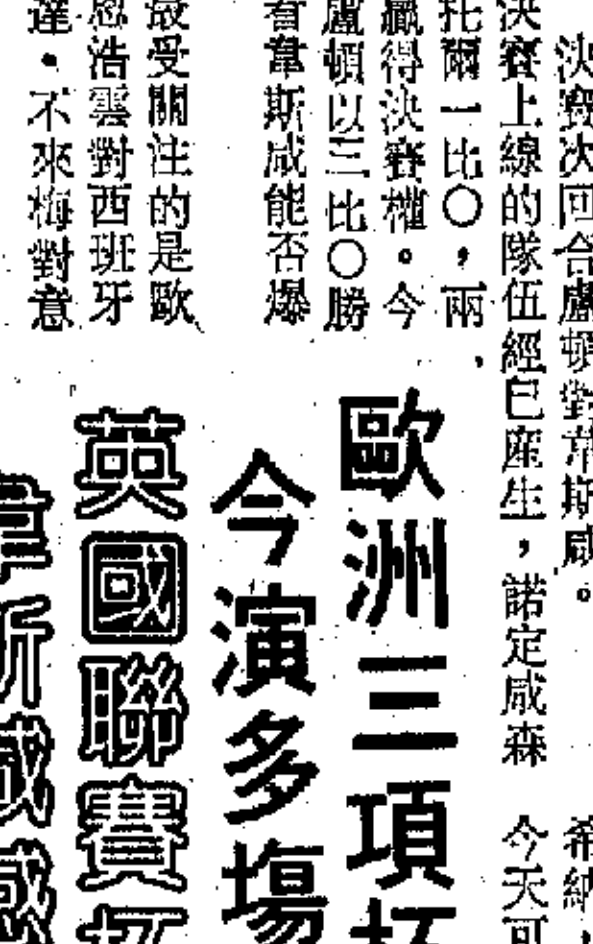 決賽次回合盧頓對韋斯咸。
希納，
決賽上線的隊伍經已産生，諾定咸森
今天可
托爾一比○，兩，
贏得決賽權。今
盧頓以三比○勝
看韋斯咸能否爆
最受關注的是歐
恩浩雲對西班牙
達。不來梅對意
歐洲三項杯
今演多場
英國聯賽杯
韋斯咸感